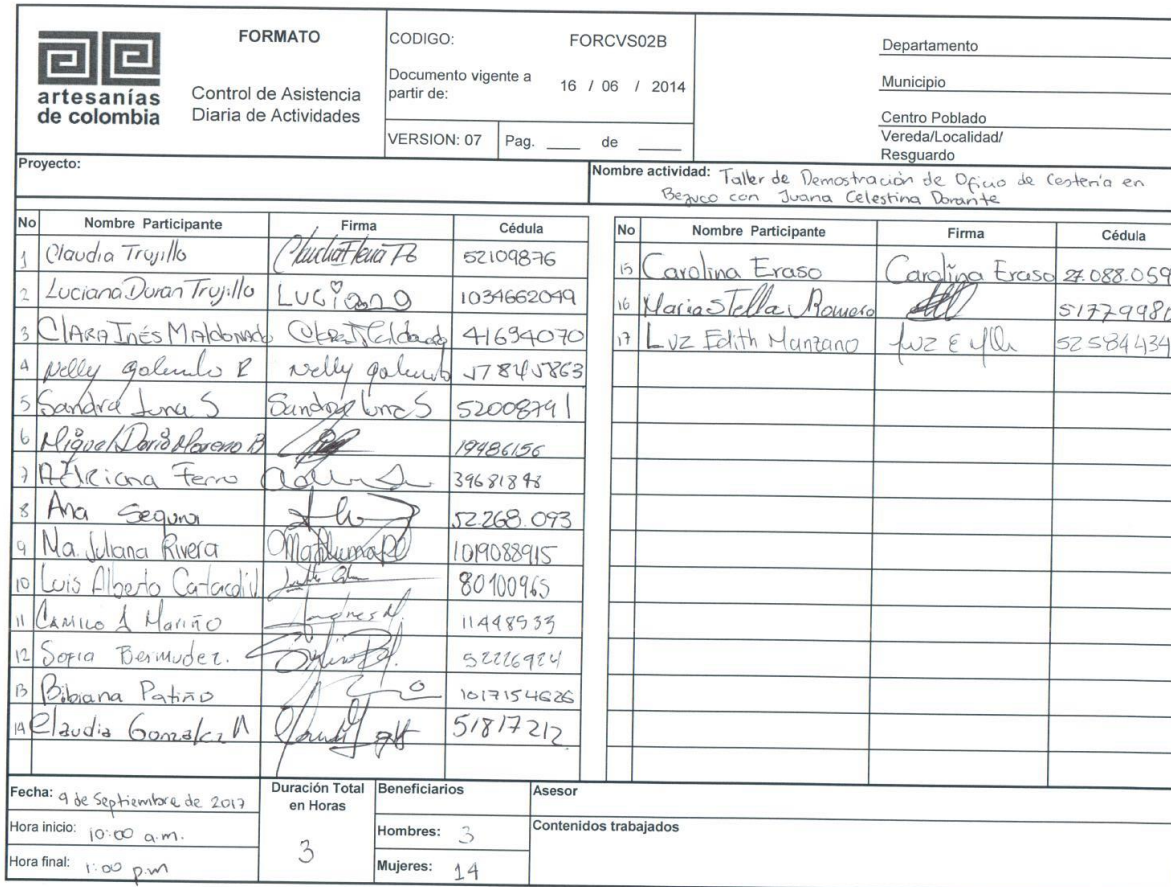 artesanías
de colombia
FORMATO
Control de Asistencia
Diaria de Actividades
CODIGO: FORCVS02B
Documento vigente a
partir de: 16 / 06 / 2014
VERSION: 07 Pag. ____ de ____
Departamento
Municipio
Centro Poblado
Vereda/Localidad/
Resguardo
Proyecto:
Nombre actividad: Taller de Demostración de Oficio de Cestería en
Bejuco con Juana Celestina Dorante
No Nombre Participante Firma Cédula
1 Claudia Trujillo 52109876
2 Luciana Duran Trujillo Luciana 1034662049
3 CLARA Inés MAldonado 41694070
4 Nelly galindo R Nelly galindo
5 Sandra Luna S Sandra Luna S 52008791
6 Miguel Dario Moreno B 19486156
7 Adriana Ferro
8 Ana Segura 52.268.093
9 Ma. Juliana Rivera 1019088915
10 Luis Alberto 80100965
11 CAMILO A Mariño Andres M. 11448533
12 Sofia Bermudez. 52226924
13 Bibiana Patiño 1017154626
14 Claudia Gonzalez N 51817212
No Nombre Participante Firma Cédula
15 Carolina Eraso Carolina Eraso 27.088.059
16 Maria Stella Romero
17 Luz Edith Manzano 52584434
Fecha: 9 de Septiembre de 2017
Hora inicio: 10:00 a.m.
Hora final: 1:00 p.m
Duración Total
en Horas
3
Beneficiarios
Hombres: 3
Mujeres: 14
Asesor
Contenidos trabajados